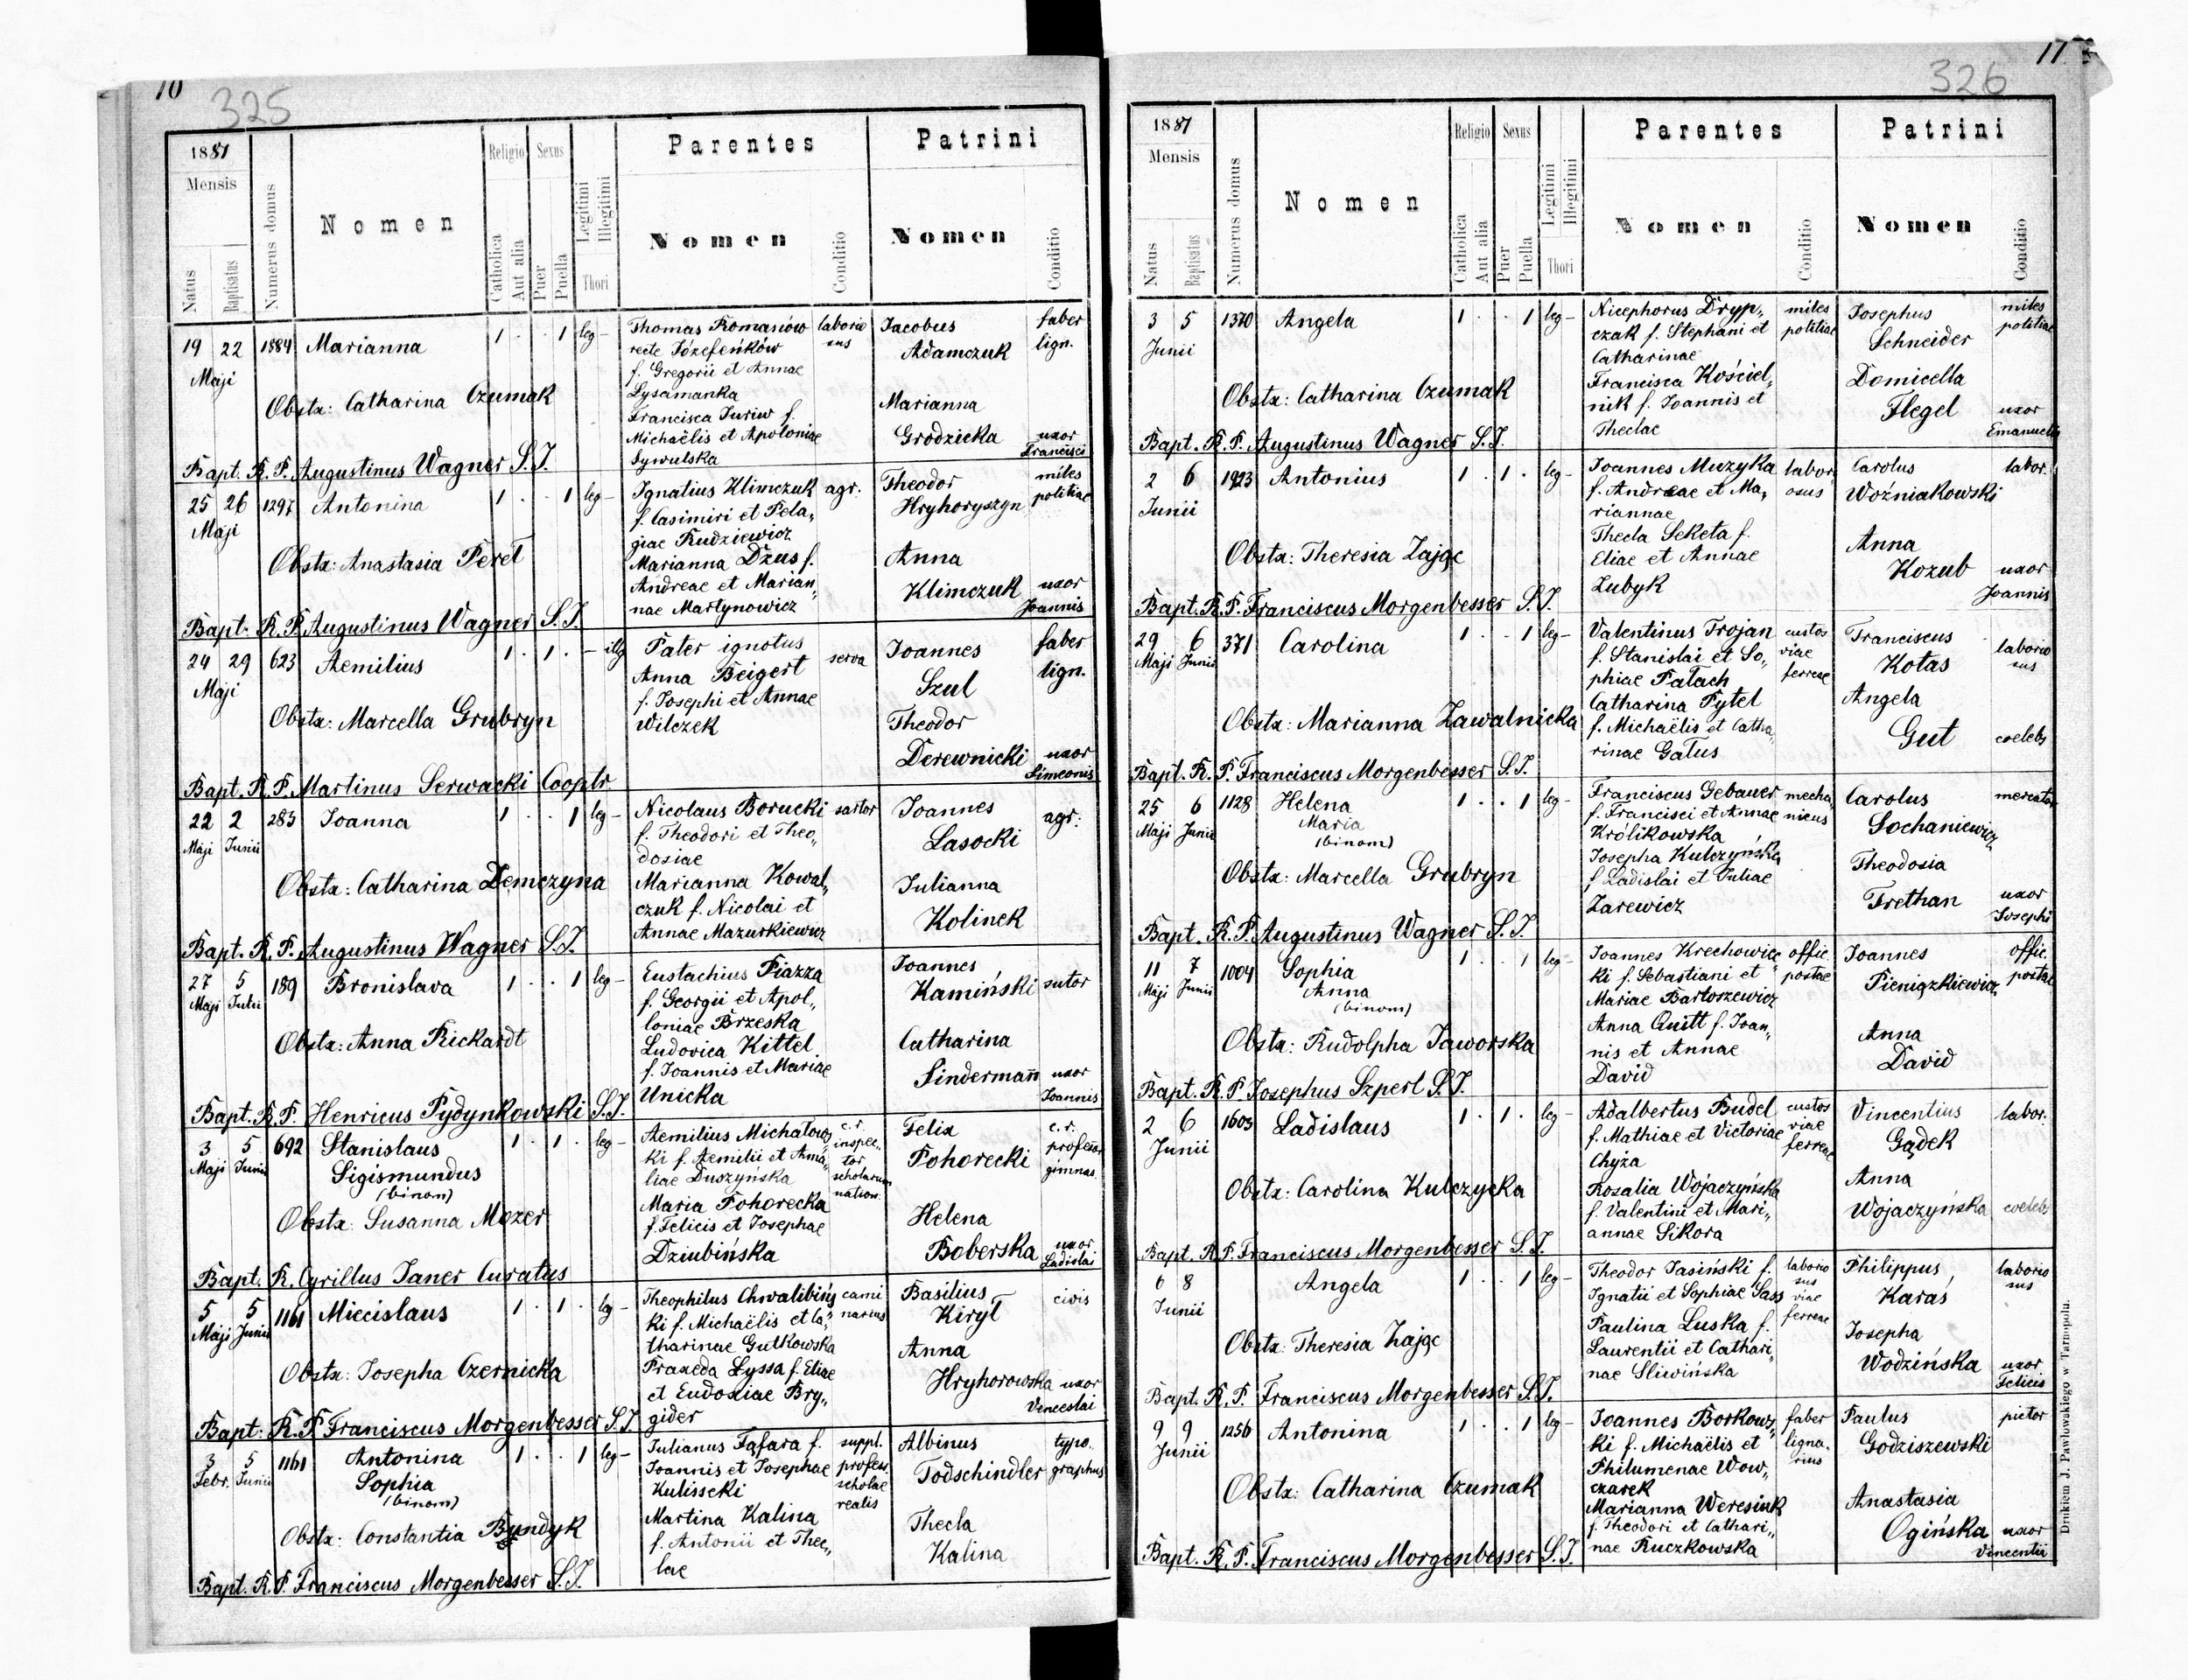 10
325
1881
Mensis
Natus
Baptisatus
Numerus domus
Nomen
Religio
Catholica
Aut alia
Sexus
Puer
Puella
Legitimi
Illegitimi
Thori
Parentes
Nomen
Conditio
Patrini
Nomen
Conditio
19 22 1884 Marianna 1 . . 1 leg –
Maji
Obstx: Catharina Czumak
Thomas Romaniów
recte Józefeńków
f. Gregorii et Annae
Lysamanka
Francisca Juriw f.
Michaëlis et Apoloniae
Sywulska
laborio
sus
Jacobus
Adamczuk
faber
lign.
Marianna
Grodzicka
uxor
Francisci
Bapt. R. P. Augustinus Wagner S.J.
25 26 1297 Antonina 1 . . 1 leg –
Maji
Obstx: Anastasia Pereł
Ignatius Klimczuk
f. Casimiri et Pela„
giae Rudziewicz
Marianna Dzus f.
Andreae et Marian„
nae Martynowicz
agr.
Theodor
Hryhoryszyn
miles
politiae
Anna
Klimczuk
uxor
Joannis
Bapt. R. P. Augustinus Wagner S.J.
24 29 623 Aemilius 1 . 1 . – illg
Maji
Obstx: Marcella Grubryn
Pater ignotus
Anna Beigert
f. Josephi et Annae
Wilczek
serva
Joannes
Szul
faber
lign.
Theodor
Derewnicki
uxor
Simeonis
Bapt. R. P. Martinus Serwacki Cooptr
22 2 283 Joanna 1 . . 1 leg –
Maji Junii
Obstx: Catharina Demczyna
Nicolaus Borucki
f. Theodori et Theo„
dosiae
Marianna Kowal„
czuk f. Nicolai et
Annae Mazurkiewicz
sartor
Joannes
Lasocki
agr.
Julianna
Kolinek
Bapt. R. P. Augustinus Wagner S.J.
27 5 189 Bronislava 1 . . 1 leg –
Maji Junii
Obstx: Anna Rickardt
Eustachius Piazza
f. Georgii et Apol„
loniae Brzeska
Ludovica Kittel
f. Joannis et Mariae
Unicka
Joannes
Kamiński
sutor
Catharina
Sindermann
uxor
Joannis
Bapt. R. P. Henricus Pydynkowski S.J.
3 5 692 Stanislaus 1 . 1 . leg –
Maji Junii Sigismundus
(binom)
Obstx: Susanna Mozer
Aemilius Michałow„
ki f. Aemilii et Ama„
liae Duszyńska
Maria Pohorecka
f. Felicis et Josephae
Dziubińska
c.r.
inspec„
tor
scholarum
nation.
Felix
Pohorecki
c.r.
profesor
gimnas.
Helena
Boberska
uxor
Ladislai
Bapt. R. Cyrillus Janer Curatus
5 5 1161 Miecislaus 1 . 1 . leg –
Maji Junii
Obstx: Josepha Czernicka
Theophilus Chwalibińs
ki f. Michaëlis et Ca„
tharinae Gutkowska
Praxeda Lyssa f. Eliae
et Eudoxiae Bry„
gider
cami
narius
Basilius
Kirył
civis
Anna
Hryhorowska
uxor
Venceslai
Bapt. R. P. Franciscus Morgenbesser S.J.
3 5 1161 Antonina 1 . . 1 leg –
Febr. Junii Sophia
(binom)
Obstx: Constantia Byndyk
Julianus Fąfara f.
Joannis et Josephae
Kulissecki
Martina Kalina
f. Antonii et Thec„
lae
suppl.
profess.
scholae
realis
Albinus
Todschindler
typo„
graphus
Thecla
Kalina
Bapt. R. P. Franciscus Morgenbesser S.J.
17
326
1881
Mensis
Natus
Baptisatus
Numerus domus
Nomen
Religio
Catholica
Aut alia
Sexus
Puer
Puella
Legitimi
Illegitimi
Thori
Parentes
Nomen
Conditio
Patrini
Nomen
Conditio
3 5 1370 Angela 1 . . 1 leg –
Junii
Obstx: Catharina Czumak
Nicephorus Dryp„
czak f. Stephani et
Catharinae
Francisca Kościel„
nik f. Joannis et
Theclae
miles
politiae
Josephus
Schneider
miles
politiae
Domicella
Flegel
uxor
Emanuelis
Bapt. R. P. Augustinus Wagner S.J.
2 6 1923 Antonius 1 . 1 . leg –
Junii
Obstx: Theresia Zając
Joannes Muzyka
f. Andreae et Ma„
riannae
Thecla Seketa f.
Eliae et Annae
Zubyk
labor„
osus
Carolus
Woźniakowski
labor.
Anna
Kozub
uxor
Joannis
Bapt. R. P. Franciscus Morgenbesser S.J.
29 6 371 Carolina 1 . . 1 leg –
Maji Junii
Obstx: Marianna Zawalnicka
Valentinus Trojan
f. Stanislai et So„
phiae Pałach
Catharina Pytel
f. Michaëlis et Catha„
rinae Gałus
custos
viae
ferreae
Franciscus
Kotas
laborio
sus
Angela
Gut
coelebs
Bapt. R. P. Franciscus Morgenbesser S.J.
25 6 1128 Helena 1 . . 1 leg –
Maji Junii Maria
(binom)
Obstx: Marcella Grubryn
Franciscus Gebauer
f. Francisci et Annae
Królikowska
Josepha Kulczyńska
f. Ladislai et Juliae
Zarewicz
mecha„
nicus
Carolus
Sochaniewicz
mercator
Theodosia
Trethan
uxor
Josephi
Bapt. R. P. Augustinus Wagner S.J.
11 7 1004 Sophia 1 . . 1 leg –
Maji Junii Anna
(binom)
Obstx: Rudolpha Jaworska
Joannes Krechowic„
ki f. Sebastiani et
Mariae Bartoszewicz
Anna Quitt f. Joan„
nis et Annae
David
offic.
postae
Joannes
Pieniązkiewicz
offic.
postae
Anna
David
Bapt. R. P. Josephus Szperl S.J.
2 6 1603 Ladislaus 1 . 1 . leg –
Junii
Obstx: Carolina Kulczycka
Adalbertus Budel
f. Mathiae et Victoriae
Chyża
Rosalia Wojaczyńska
f. Valentini et Mari„
annae Sikora
custos
viae
ferreae
Vincentius
Gądek
labor.
Anna
Wojaczyńska
coelebs
Bapt. R. P. Franciscus Morgenbesser S.J.
6 8 Angela 1 . . 1 leg –
Junii
Obstx: Theresia Zając
Theodor Jasiński f.
Ignatii et Sophiae Sass
Paulina Luska f.
Laurentii et Cathari„
nae Sliwińska
laborio
sus
viae
ferreae
Philippus
Karaś
laborio
sus
Josepha
Wodzińska
uxor
Felicis
Bapt. R. P. Franciscus Morgenbesser S.J.
9 9 1256 Antonina 1 . . 1 leg –
Junii
Obstx: Catharina Czumak
Joannes Borkows„
ki f. Michaëlis et
Philumenae Wow„
czarek
Marianna Weresiuk
f. Theodori et Cathari„
nae Ruczkowska
faber
ligna„
rius
Paulus
Godziszewski
pictor
Anastasia
Ogińska
uxor
Vincentii
Bapt. R. P. Franciscus Morgenbesser S.J.
Drukiem J. Pawłowskiego w Tarnopolu.